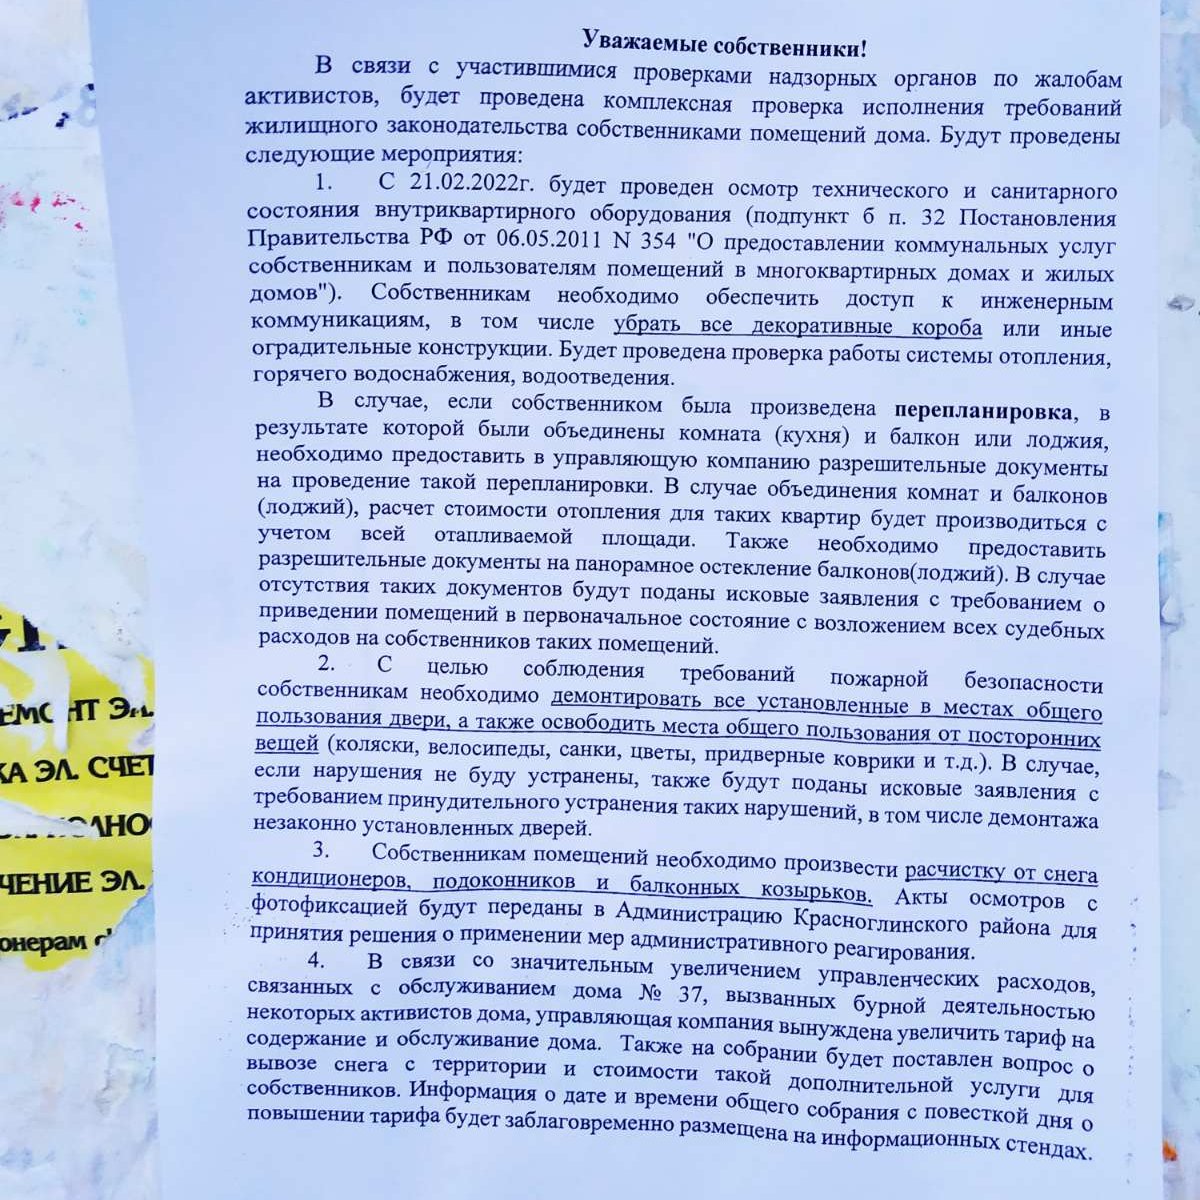 Уважаемые собственники!
В связи с участившимися проверками надзорных органов по жалобам
активистов, будет проведена комплексная проверка исполнения требований
жилищного законодательства собственниками помещений дома. Будут проведены
следующие мероприятия:
1. С 21.02.2022г. будет проведен осмотр технического и санитарного
состояния внутриквартирного оборудования (подпункт б п. 32 Постановления
Правительства РФ от 06.05.2011 N 354 "О предоставлении коммунальных услуг
собственникам и пользователям помещений в многоквартирных домах и жилых
домов"). Собственникам необходимо обеспечить доступ к инженерным
коммуникациям, в том числе убрать все декоративные короба или иные
оградительные конструкции. Будет проведена проверка работы системы отопления,
горячего водоснабжения, водоотведения.
В случае, если собственником была произведена перепланировка, в
результате которой были объединены комната (кухня) и балкон или лоджия,
необходимо предоставить в управляющую компанию разрешительные документы
на проведение такой перепланировки. В случае объединения комнат и балконов
(лоджий), расчет стоимости отопления для таких квартир будет производиться с
учетом всей отапливаемой площади. Также необходимо предоставить
разрешительные документы на панорамное остекление балконов(лоджий). В случае
отсутствия таких документов будут поданы исковые заявления с требованием о
приведении помещений в первоначальное состояние с возложением всех судебных
расходов на собственников таких помещений.
2. С целью соблюдения требований пожарной безопасности
собственникам необходимо демонтировать все установленные в местах общего
пользования двери, а также освободить места общего пользования от посторонних
вещей (коляски, велосипеды, санки, цветы, придверные коврики и т.д.). В случае,
если нарушения не буду устранены, также будут поданы исковые заявления с
требованием принудительного устранения таких нарушений, в том числе демонтажа
незаконно установленных дверей.
3. Собственникам помещений необходимо произвести расчистку от снега
кондиционеров, подоконников и балконных козырьков. Акты осмотров с
фотофиксацией будут переданы в Администрацию Красноглинского района для
принятия решения о применении мер административного реагирования.
4. В связи со значительным увеличением управленческих расходов,
связанных с обслуживанием дома № 37, вызванных бурной деятельностью
некоторых активистов дома, управляющая компания вынуждена увеличить тариф на
содержание и обслуживание дома. Также на собрании будет поставлен вопрос о
вывозе снега с территории и стоимости такой дополнительной услуги для
собственников. Информация о дате и времени общего собрания с повесткой дня о
повышении тарифа будет заблаговременно размещена на информационных стендах.
ЕМОНТ ЭЛ.
КА ЭЛ. СЧЕТ
ЧЕНИЕ ЭЛ.
онерам